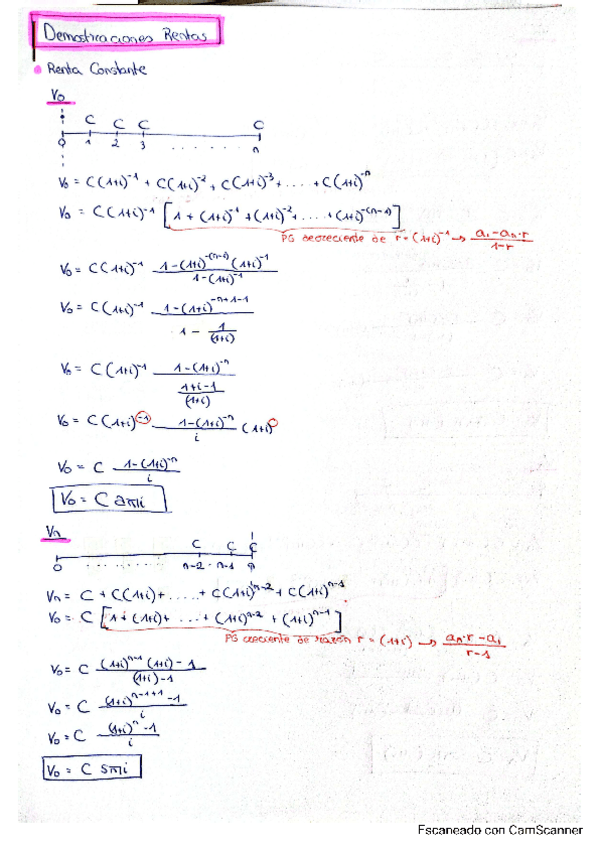 Demostraciones Rentas
Renta Constante
V₀
C C C C
0 1 2 3 ...... n
V₀ = C(1+i)⁻¹ + C(1+i)⁻² + C(1+i)⁻³ + .... + C(1+i)⁻ⁿ
V₀ = C(1+i)⁻¹ [1 + (1+i)⁻¹ + (1+i)⁻² + .... + (1+i)^-(n-1)]
PG decreciente de r = (1+i)⁻¹ → (a₁ - aₙ·r)/(1-r)
V₀ = C(1+i)⁻¹ (1-(1+i)^-(n-1) (1+i)⁻¹)/(1-(1+i)⁻¹)
V₀ = C(1+i)⁻¹ (1-(1+i)^-n+1-1)/(1 - 1/(1+i))
V₀ = C(1+i)⁻¹ (1-(1+i)⁻ⁿ)/((1+i-1)/(1+i))
V₀ = C(1+i)⁻¹ (1-(1+i)⁻ⁿ)/i (1+i)
V₀ = C (1-(1+i)⁻ⁿ)/i
V₀ = C an̅|i
Vn
C C C
0 ........ n-2 n-1 n
Vn = C + C(1+i) + ..... + C(1+i)ⁿ⁻² + C(1+i)ⁿ⁻¹
V₀ = C [1 + (1+i) + ... + (1+i)ⁿ⁻² + (1+i)ⁿ⁻¹]
PG creciente de razón r = (1+i) → (aₙ·r - a₁)/(r-1)
V₀ = C ((1+i)ⁿ⁻¹ (1+i) - 1)/((1+i)-1)
V₀ = C ((1+i)ⁿ⁻¹⁺¹ - 1)/i
V₀ = C ((1+i)ⁿ - 1)/i
V₀ = C sn̅|i
Escaneado con CamScanner